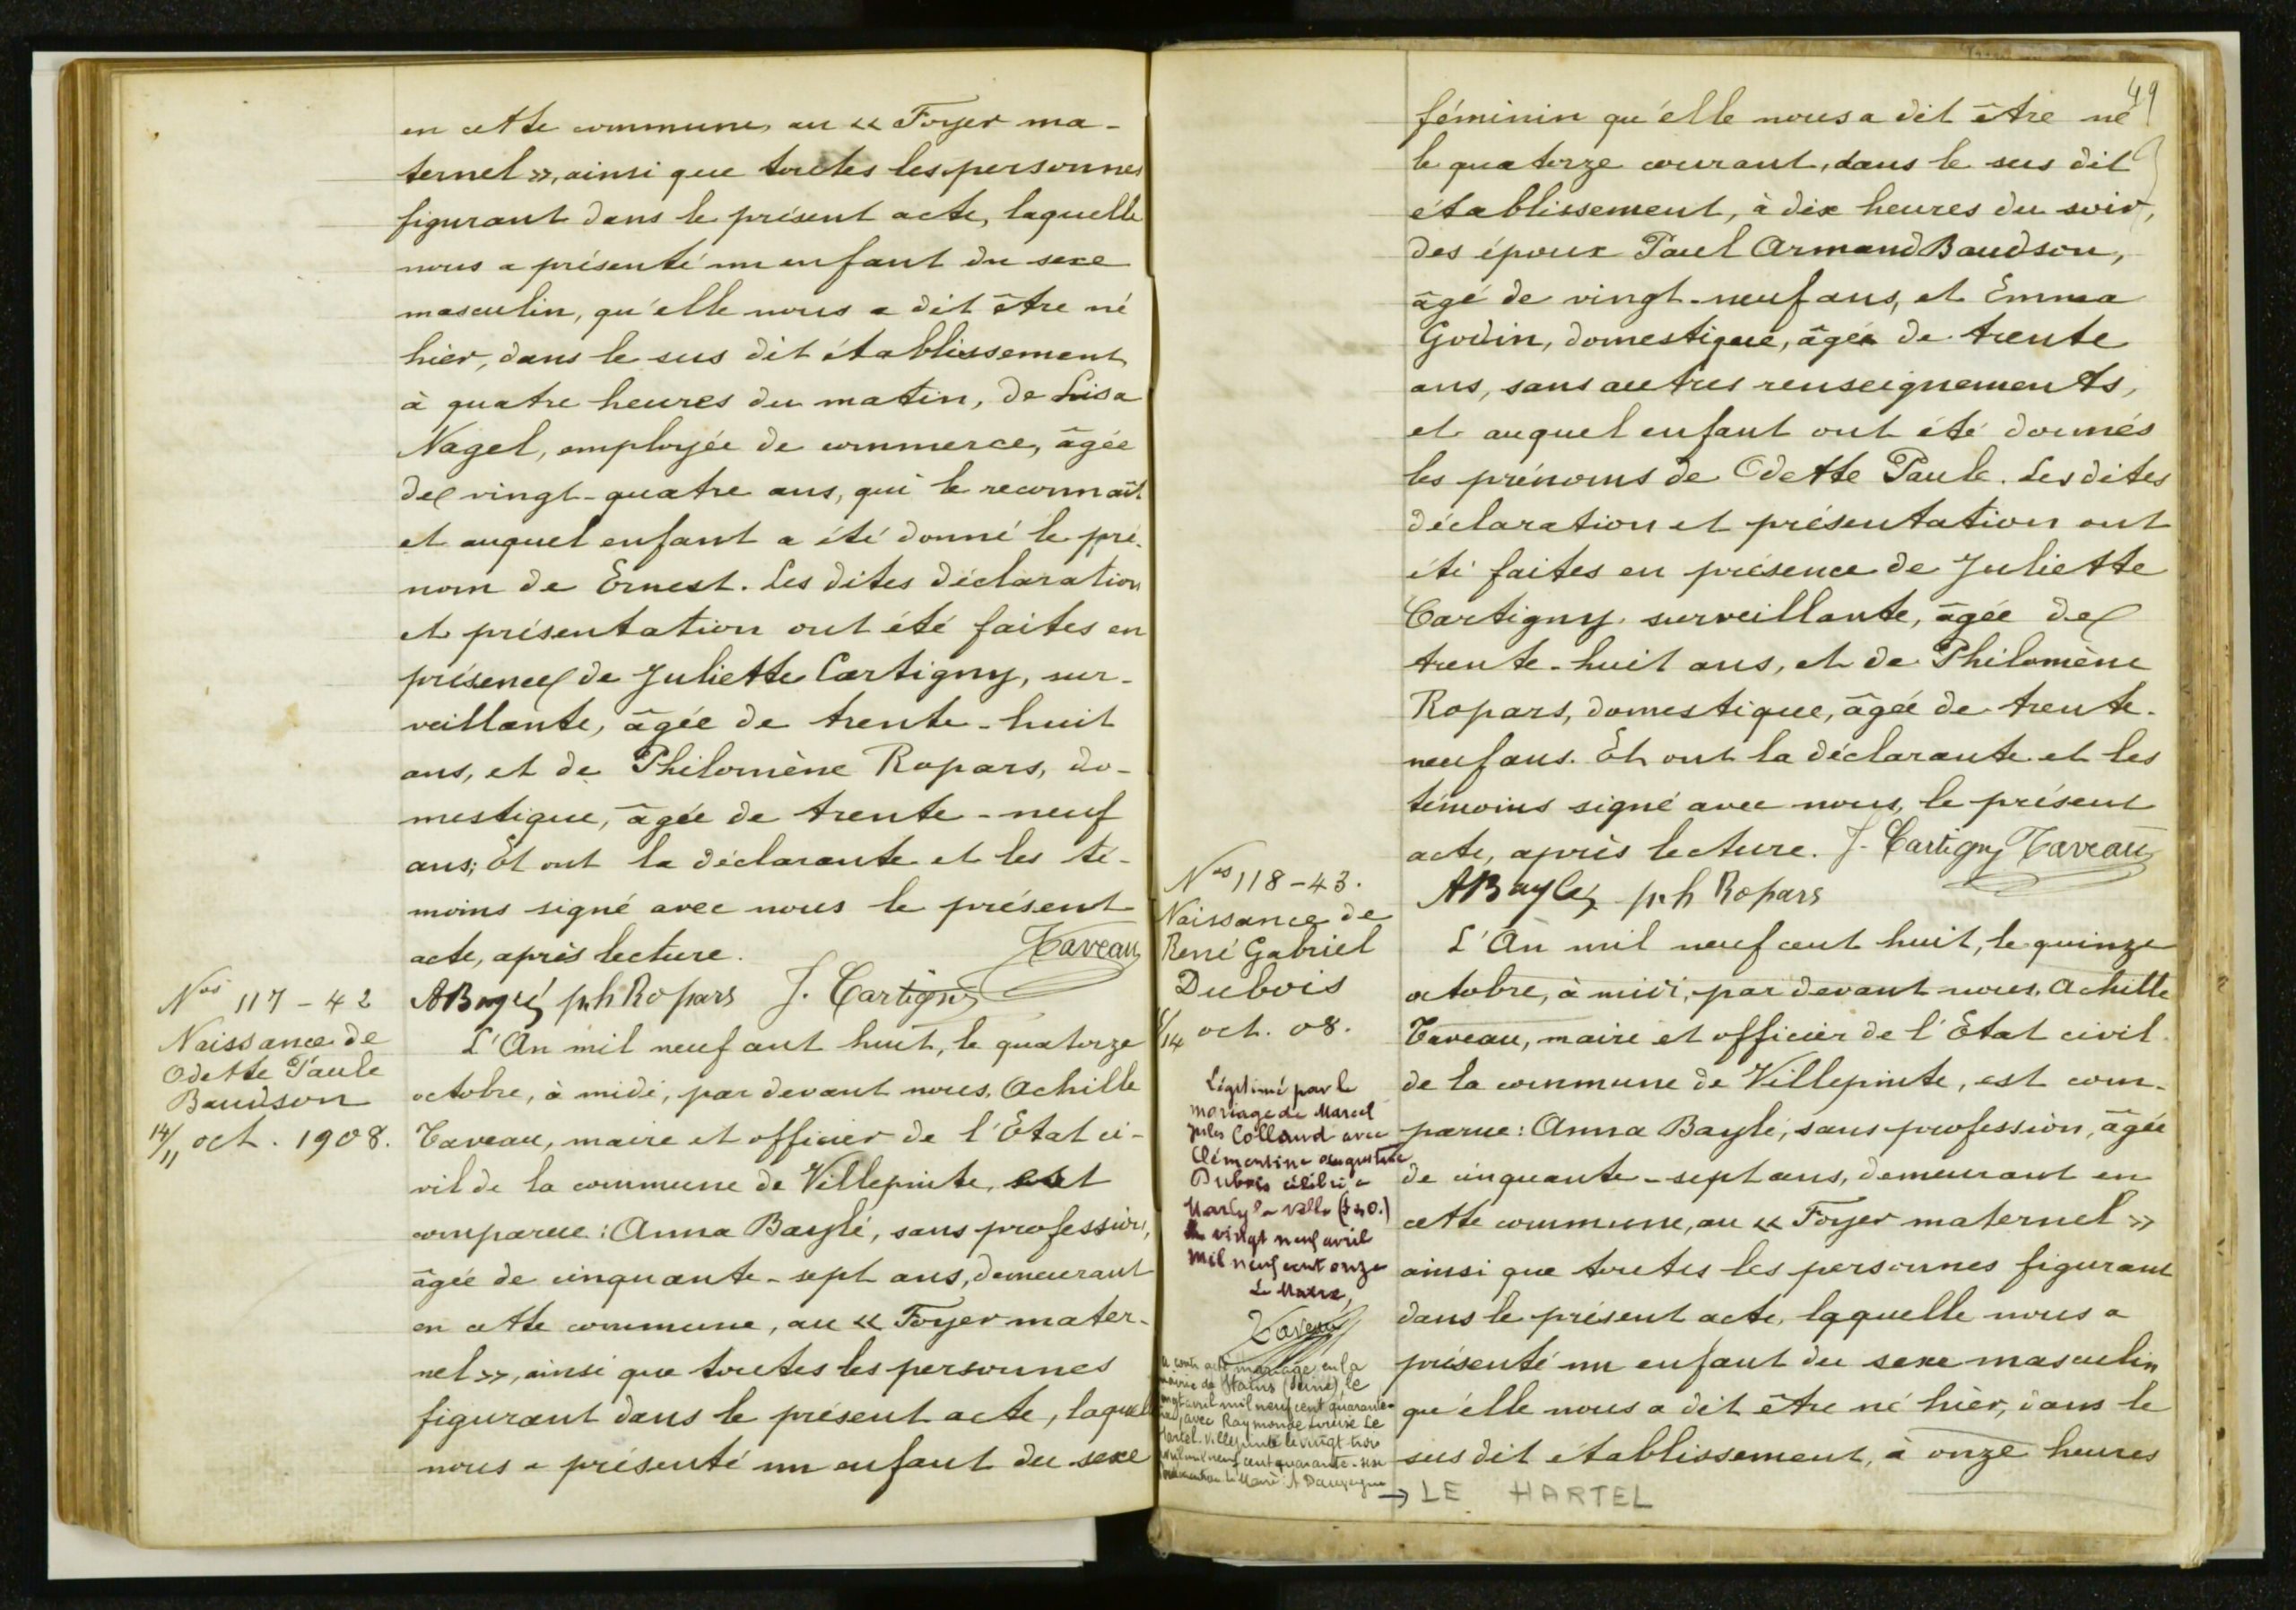 en cette commune, au « Foyer ma-
ternel », ainsi que toutes les personnes
figurant dans le présent acte, laquelle
nous a présenté un enfant du sexe
masculin, qu'elle nous a dit être né
hier, dans le sus dit établissement
à quatre heures du matin, de Lisa
Nagel, employée de commerce, âgée
de vingt-quatre ans, qui le reconnaît
et auquel enfant a été donné le pré-
nom de Ernest. Les dites déclaration
et présentation ont été faites en
présence de Juliette Cartigny, sur-
veillante, âgée de trente-huit
ans, et de Philomène Ropars, do-
mestique, âgée de trente-neuf
ans; Et ont la déclarante et les té-
moins signé avec nous le présent
acte, après lecture. Taveau
ABaylé ph Ropars J. Cartigny
Nos 117-42
Naissance de
Odette Paule
Baudson
14/11 oct. 1908.
L'An mil neuf cent huit, le quatorze
octobre, à midi, par devant nous, Achille
Taveau, maire et officier de l'Etat ci-
vil de la commune de Villepinte, est
comparue : Anna Baylé, sans profession,
âgée de cinquante-sept ans, demeurant
en cette commune, au « Foyer mater-
nel », ainsi que toutes les personnes
figurant dans le présent acte, laquelle
nous a présenté un enfant du sexe
49
féminin qu'elle nous a dit être né
le quatorze courant, dans le sus dit
établissement, à dix heures du soir,
des époux Paul Armand Baudson,
âgé de vingt-neuf ans, et Emma
Godin, domestique, âgée de trente
ans, sans autres renseignements,
et auquel enfant ont été donnés
les prénoms de Odette Paule. Les dites
déclaration et présentation ont
été faites en présence de Juliette
Cartigny surveillante, âgée de
trente-huit ans, et de Philomène
Ropars, domestique, âgée de trente-
neuf ans. Et ont la déclarante et les
témoins signé avec nous, le présent
acte, après lecture. J. Cartigny Taveau
ABaylé ph Ropars
Nos 118-43.
Naissance de
René Gabriel
Dubois
14 oct. 08.
Légitimé par le
mariage de Marcel
Jules Colland avec
Clémentine Augustine
Dubois célébré à
Marly la Ville (S&O.)
le vingt neuf avril
mil neuf cent onze
Le Maire,
Taveau
acte mariage en la
mairie de Stains (Seine), le
avril mil neuf cent quarante-
avec Raymonde Louise Le
Hartel. Villepinte le vingt-trois
avril mil neuf cent quarante-six
Le Maire
L'An mil neuf cent huit, le quinze
octobre, à midi, par devant nous, Achille
Taveau, maire et officier de l'Etat civil
de la commune de Villepinte, est com-
parue : Anna Baylé, sans profession, âgée
de cinquante-sept ans, demeurant en
cette commune, au « Foyer maternel »
ainsi que toutes les personnes figurant
dans le présent acte, laquelle nous a
présenté un enfant du sexe masculin
qu'elle nous a dit être né hier, dans le
sus dit établissement, à onze heures
→ LE HARTEL